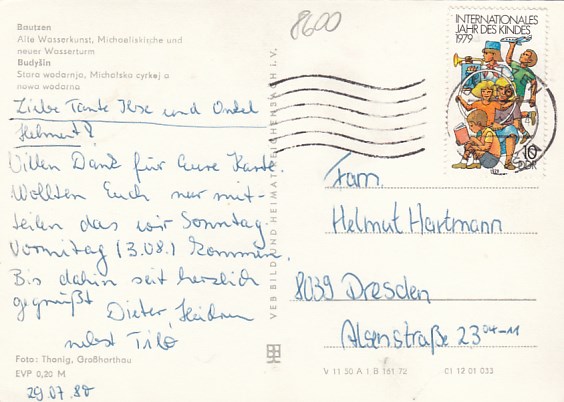 8600
Bautzen
Alte Wasserkunst, Michaeliskirche und
neuer Wasserturm
Budyšin
Stara wodarnja, Michałska cyrkej a
nowa wodarna
Liebe Tante Ilse und Onkel
Helmut!
Villen Dank für Eure Karte.
Wollten Euch nur mit-
teilen das wir Sonntag
Vormitag (3.08.) kommen.
Bis dahin seit herzlich
gegrüßt Dieter, Heidrun
nebst Tilo
Foto: Thonig, Großharthau
EVP 0,20 M
29.07.80
VEB BILD UND HEIMAT REICHENBACH I.V.
INTERNATIONALES
JAHR DES KINDES
1979
10
DDR
Fam.
Helmut Hartmann
8039 Dresden
Alsenstraße 23
V 11 50 A 1 B 161 72 CI 12 01 033